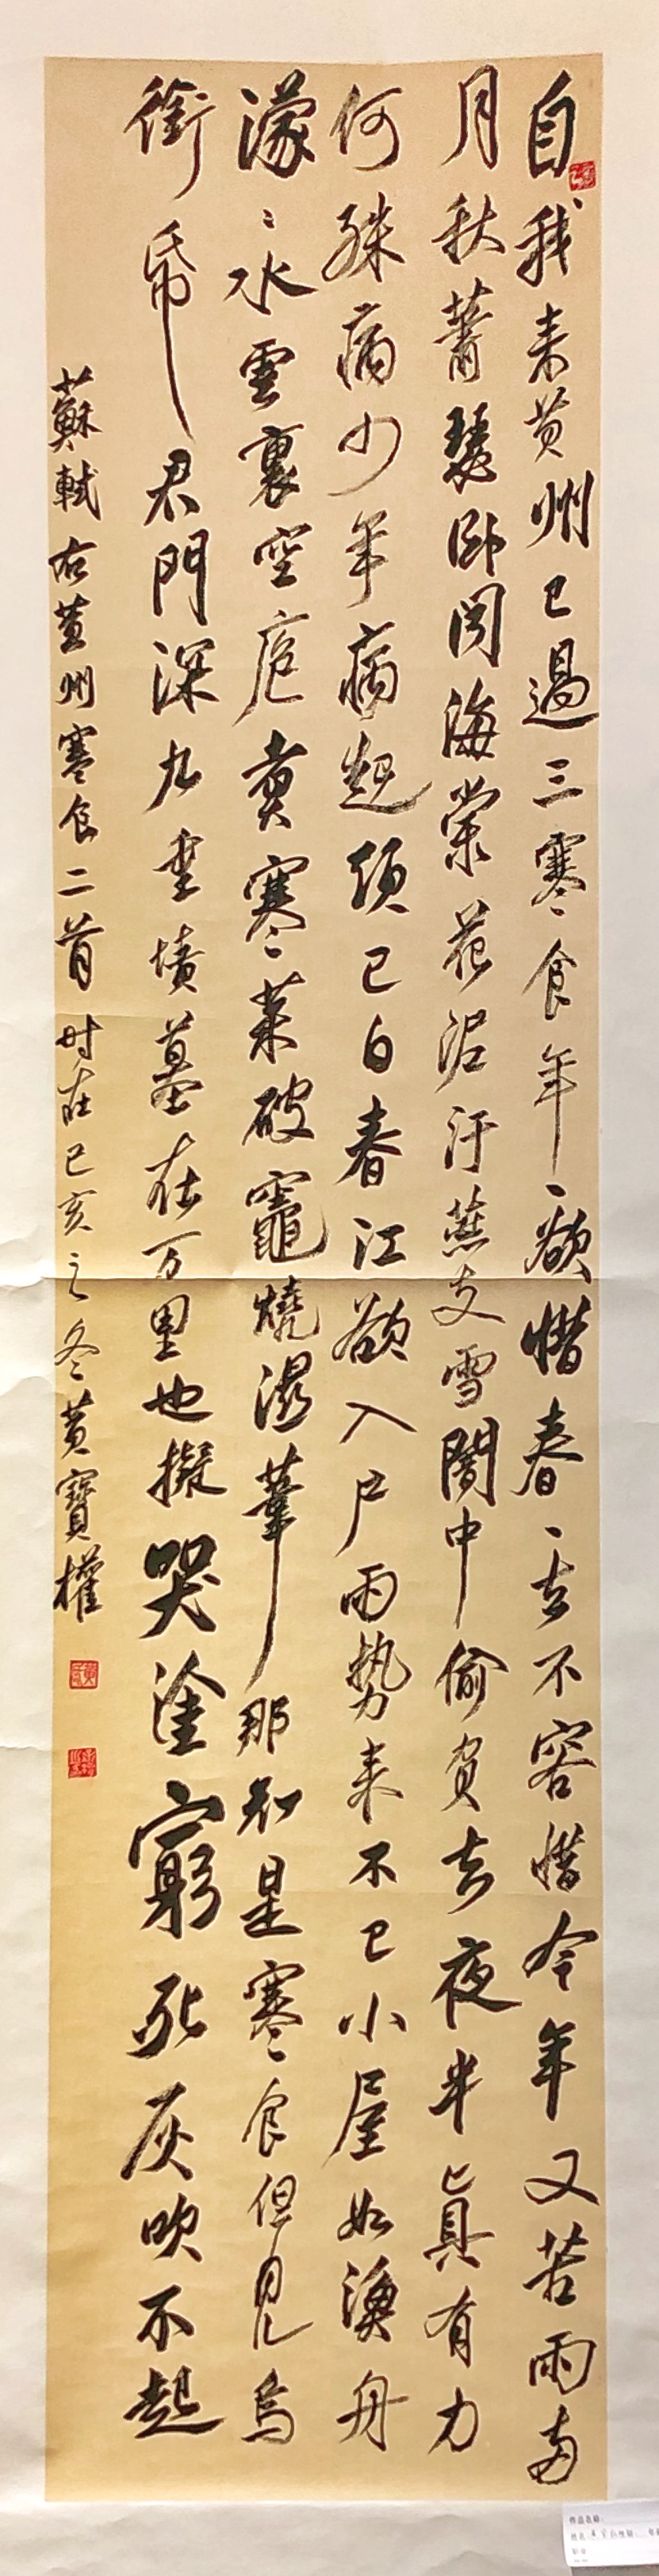 自我来黄州已過三寒食年〻欲惜春〻去不容惜今年又苦雨兩
月秋蕭瑟卧聞海棠花泥汙燕支雪闇中偷負去夜半真有力
何殊病少年病起頭已白春江欲入户雨勢来不已小屋如漁舟
濛〻水雲裏空庖煑寒菜破竈燒濕葦那知是寒食但見烏
銜帋君門深九重墳墓在万里也擬哭塗窮死灰吹不起
蘇軾右黄州寒食二首时在己亥之冬黄寳權
作品名称:
姓名: